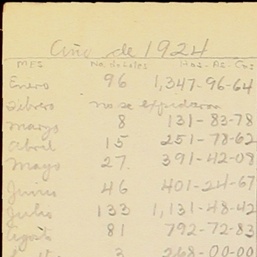 Año de 1924
MES No. de Lotes Has-As-Cas
Enero 96 1,347-96-64
Febrero no se expidieron
Marzo 8 131-83-78
Abril 15 251-78-62
Mayo 27 391-42-09
Junio 46 401-24-67
Julio 133 1,131-48-42
Agosto 81 792-72-83
3 268-00-00